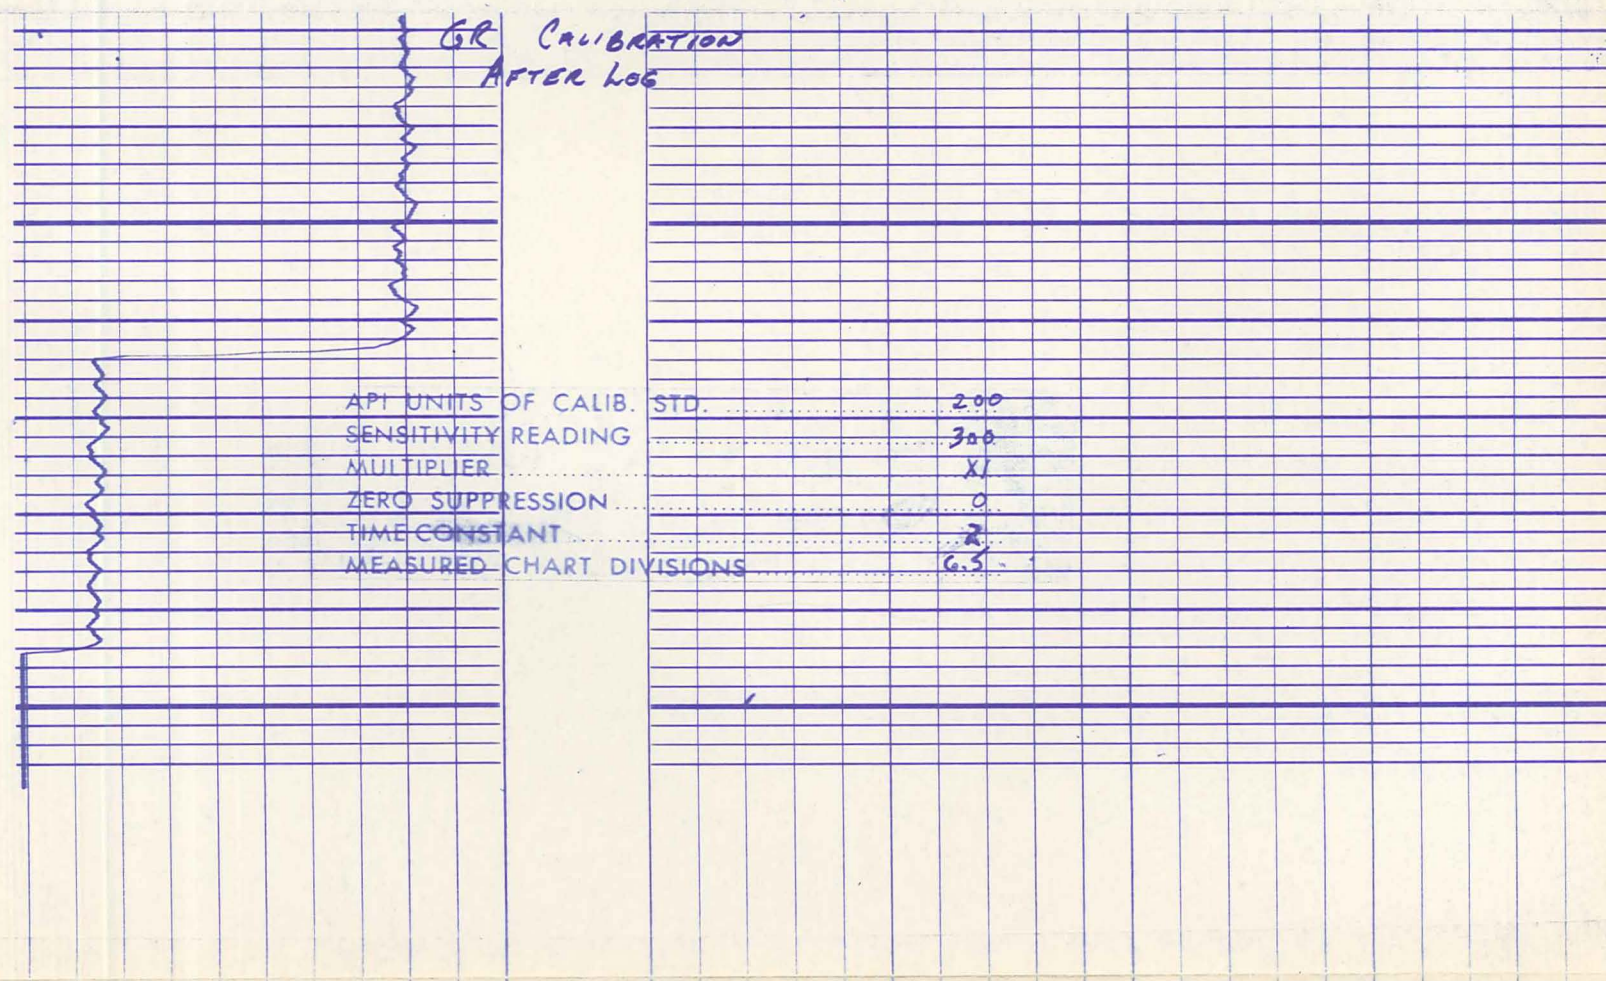 GR CALIBRATION
AFTER LOG
API UNITS OF CALIB. STD. 200
SENSITIVITY READING 300
MULTIPLIER X1
ZERO SUPPRESSION 0
TIME CONSTANT 2
MEASURED CHART DIVISIONS 6.5